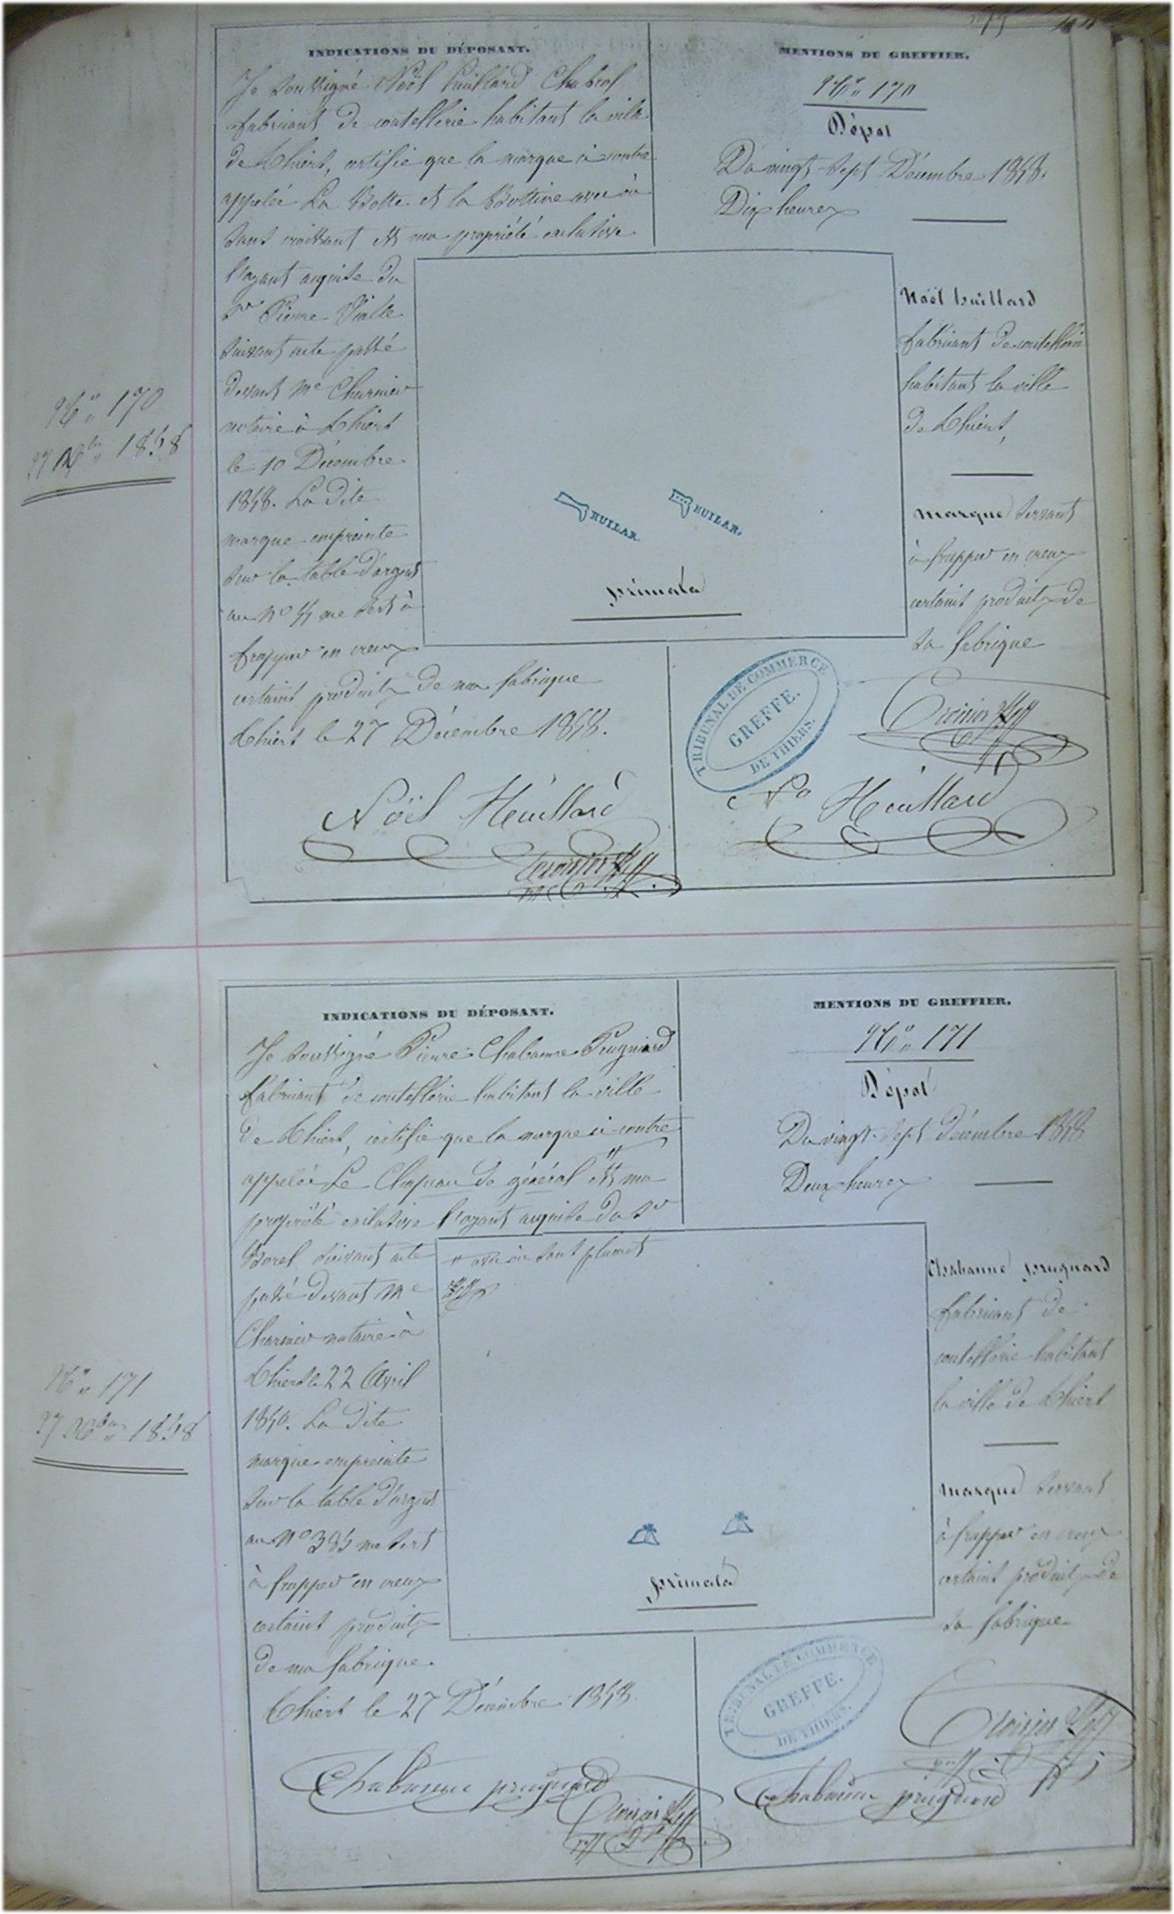 INDICATIONS DU DÉPOSANT.
Je soussigné Noël huillard Chabrol
fabricant de coutellerie habitant la ville
de Thiers, certifie que la marque ci contre
appelée La Botte et la Bottine avec ou
sans croissant est ma propriété exclusive
l'ayant acquise du
Sr Pierre
suivant acte passé
devant Me Charnier
notaire à Thiers
le 10 Décembre
1858. La dite
marque empreinte
sur la table d'argent
au No me sert à
frapper en creux
certains produits de ma fabrique
Thiers le 27 Décembre 1858.
Noël Huillard
MENTIONS DU GREFFIER.
No 170
Dépot
Du vingt-sept Décembre 1858.
Dix heures
Noël huillard
fabricant de coutellerie
habitant la ville
de Thiers,
marque servant
à frapper en creux
certains produits de
sa fabrique
HUILAR. HUILAR.
primata
TRIBUNAL DE COMMERCE
GREFFE.
DE THIERS.
No Huillard
No 170
27 Xbre 1858
INDICATIONS DU DÉPOSANT.
Je soussigné Pierre Chabanne Prugnard
fabricant de coutellerie habitant la ville
de Thiers, certifie que la marque ci contre
appelée Le Chapeau de général est ma
propriété exclusive l'ayant acquise du Sr
Borel suivant acte
passé devant Me
Charnier notaire à
Thiers le 22 Avril
La dite
marque empreinte
sur la table d'argent
au No me sert
à frapper en creux
certains produits
de ma fabrique.
Thiers le 27 Décembre 1858.
Chabanne prugnard
avec ou sans plumet
MENTIONS DU GREFFIER.
No 171
Dépot
Du vingt-sept décembre 1858
Deux heures
Chabanne prugnard
fabricant de
coutellerie habitant
la ville de Thiers
marque servant
à frapper en creux
certains produits de
sa fabrique
primata
TRIBUNAL DE COMMERCE
GREFFE.
DE THIERS.
Chabanne prugnard
No 171
27 Xbre 1858